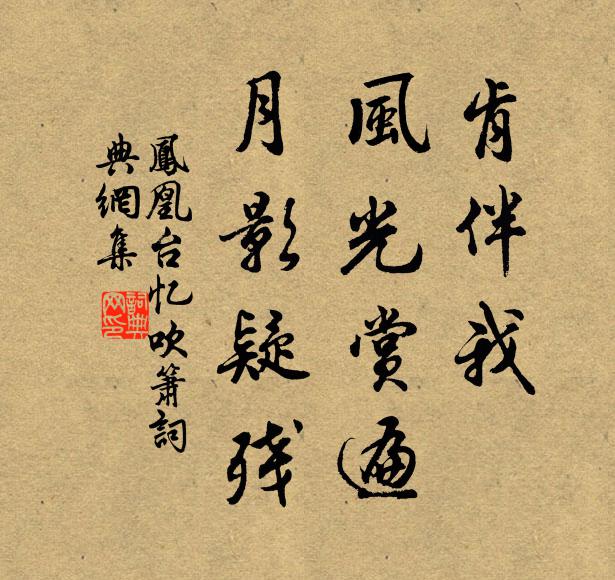 肯伴我
風光賞遍
月影疑残
鳳凰台忆吹簫詞
典網集
詞典
网印